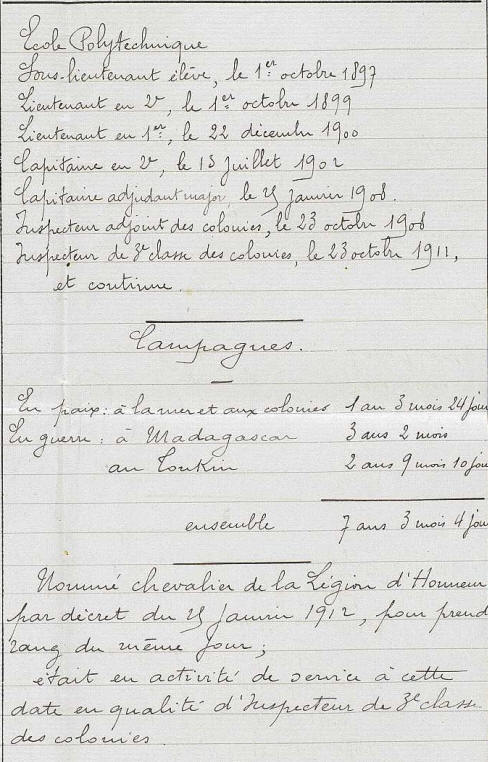 Ecole Polytechnique
Sous-lieutenant élève, le 1er octobre 1897
Lieutenant en 2d, le 1er octobre 1899
Lieutenant en 1er, le 22 décembre 1900
Capitaine en 2d, le 13 juillet 1902
Capitaine adjudant major, le 25 janvier 1908.
Inspecteur adjoint des colonies, le 23 octobre 1908
Inspecteur de 3e classe des colonies, le 23 octobre 1911,
et continue.
Campagnes.
En paix : à la mer et aux colonies 1 an 3 mois 24 jou
En guerre : à Madagascar 3 ans 2 mois
au Tonkin 2 ans 9 mois 10 jou
ensemble 7 ans 3 mois 4 jou
Nommé chevalier de la Légion d'Honneur
par décret du 25 janvier 1912, pour prend
rang du même jour ;
était en activité de service à cette
date en qualité d'Inspecteur de 3e classe
des colonies.